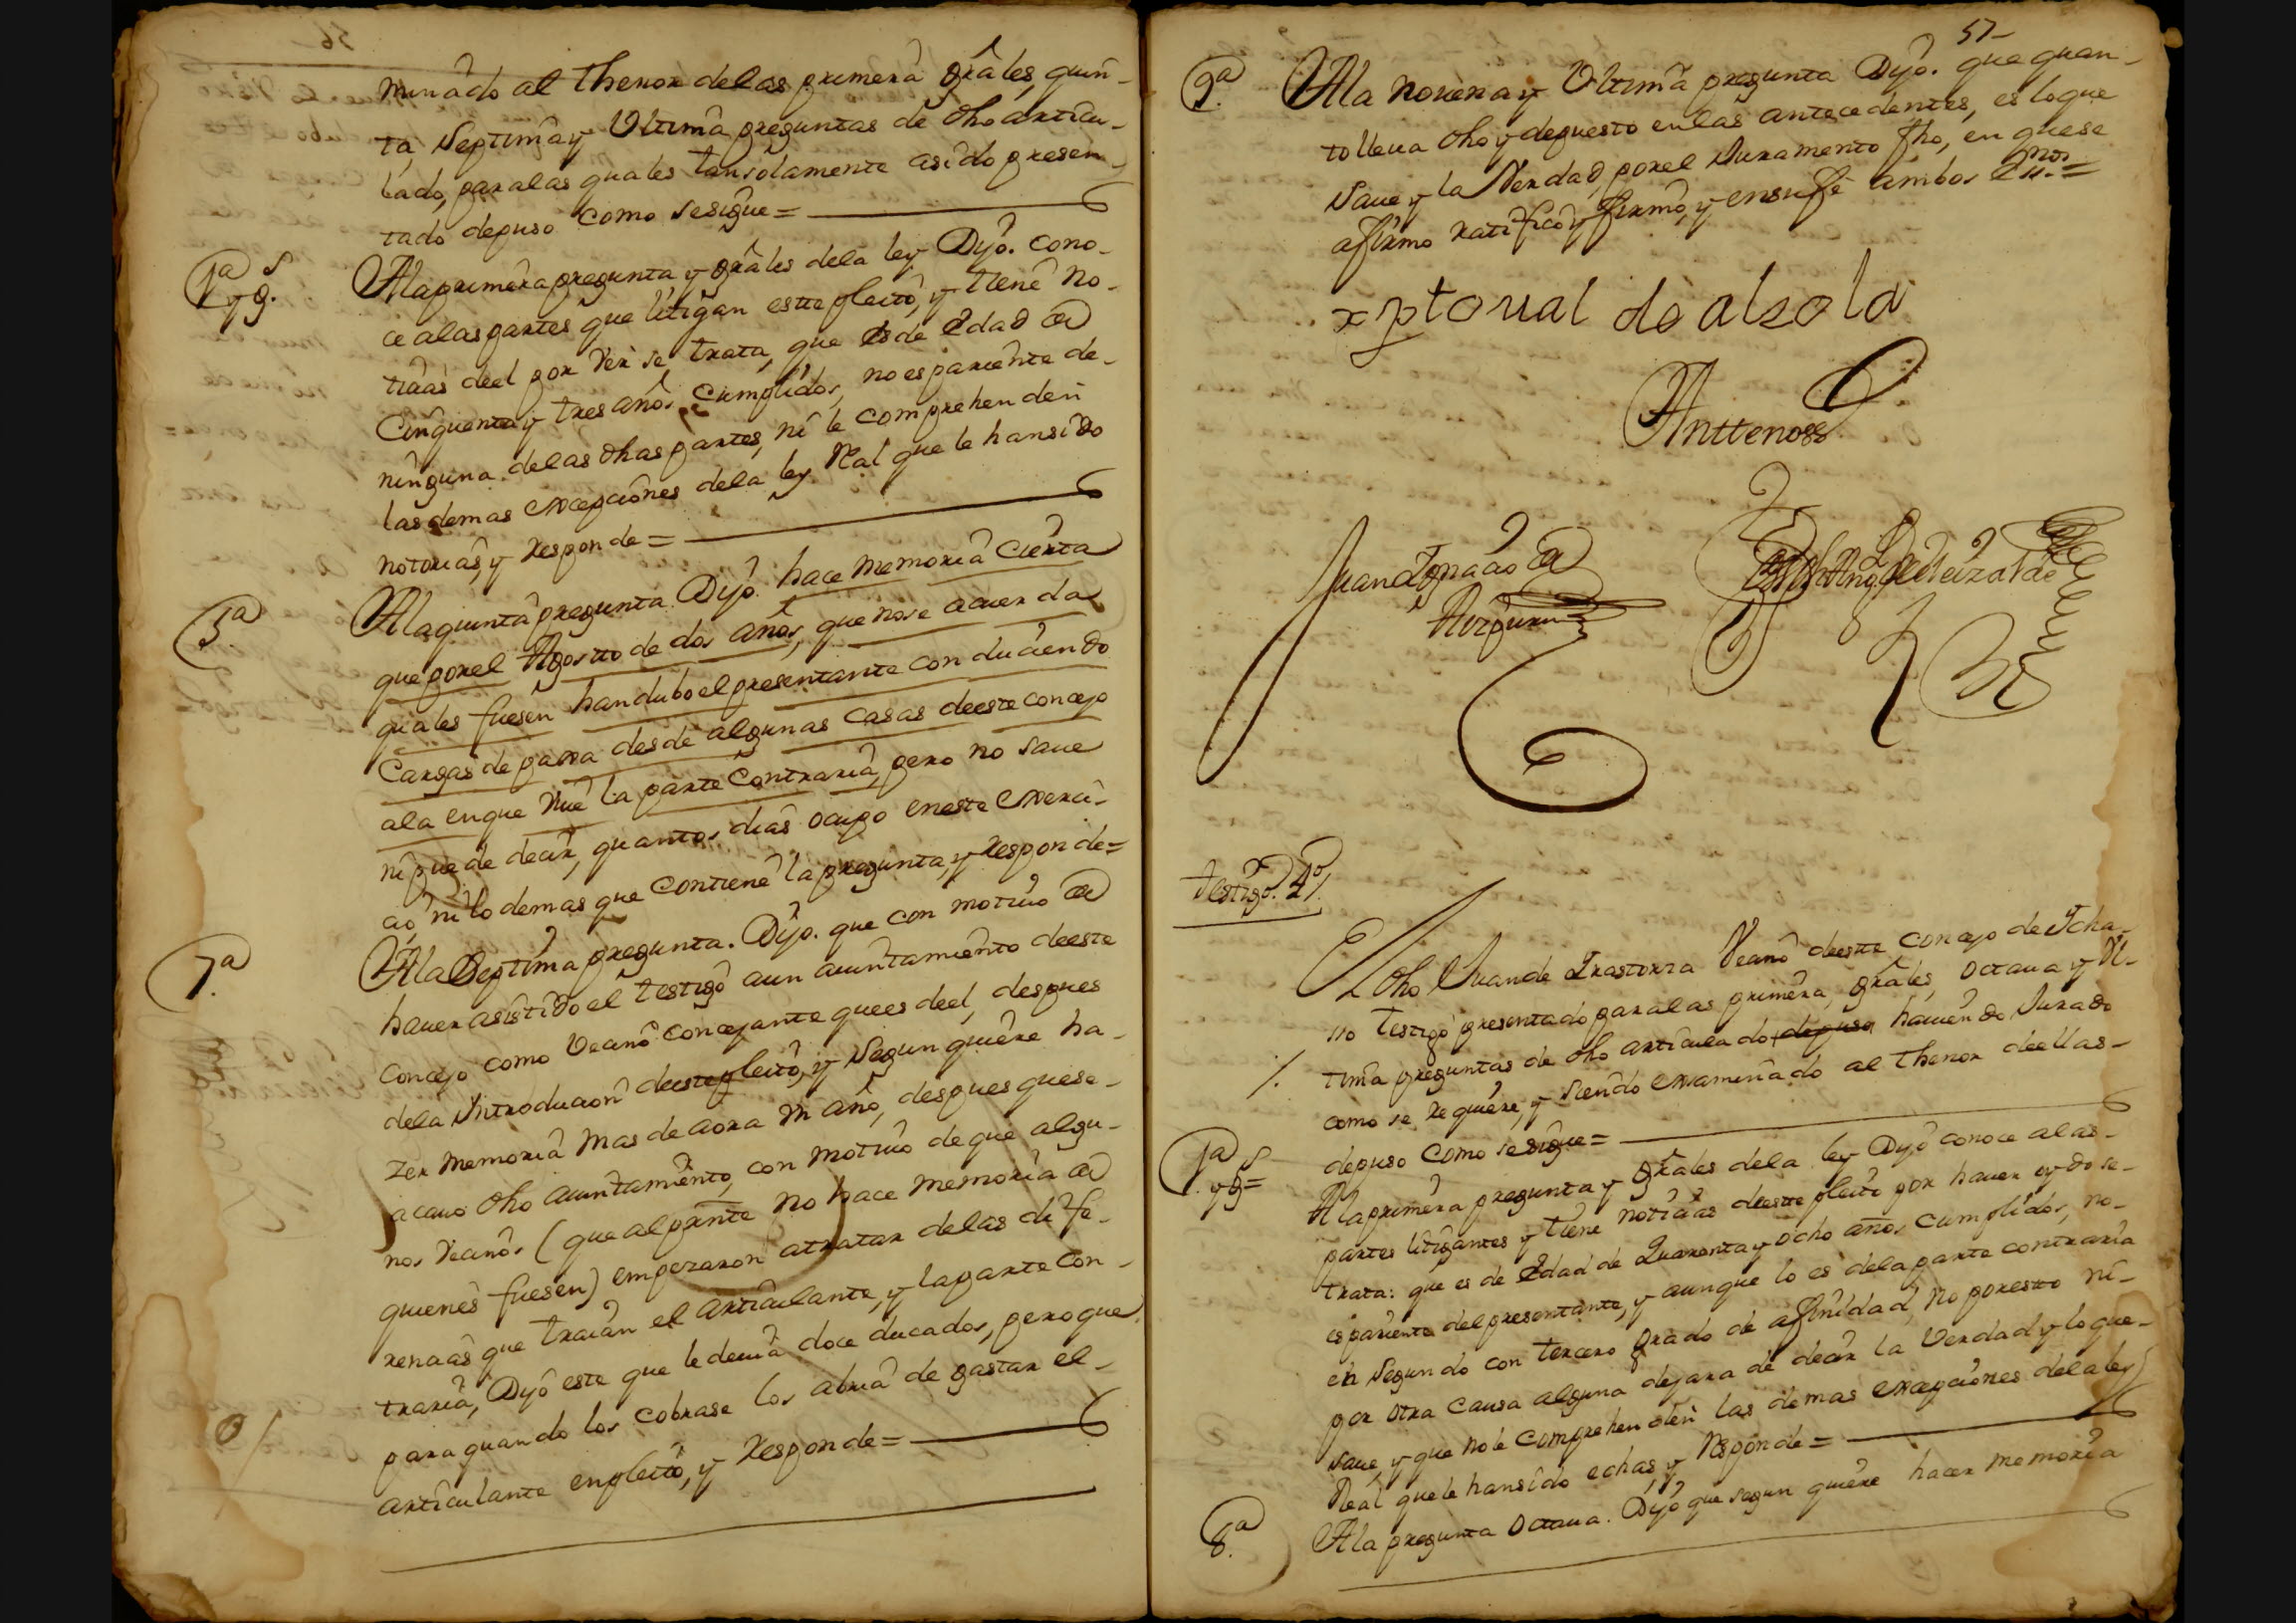 minado al thenor delas primera grâles, quin-
ta, septima y Ultima preguntas de dho articu-
lado, paralas quales tansolamente asido presen-
tado depuso como sesigue=
1ª y g.
Ala primera pregunta, y grâles dela ley Dijo. cono-
ce alas partes que litigan estte pleito, y tiene no-
ticias deel por ver se trata, que es de edad de
Cinquenta y tres años cumplidos, no es pariente de-
ninguna delas dhas partes, ni le comprehenden
las demas excepciones dela ley Real que le hansido
notorias, y responde=
5ª
Ala quinta pregunta. Dijo. hace memoria cierta
que porel Agostto de dos años, que nose acuerda
quales fuesen handubo el presentante conduciendo
Cargas de paxa desde algunas casas deeste concejo
ala en que Viue la parte Contraria, pero no saue
ni puede decir, quantos dias ocupo eneste exerci-
cio, ni lo demas que contiene la pregunta, y responde=
7ª
Ala Septima pregunta. Dijo. que con motiuo de
hauer asistido el testigo aun aiuntamiento deeste
Concejo como Vecino Concejante quees deel, despues
dela Introducion deeste pleito, y segun quiere ha-
zer memoria mas de aora Vn año, despues quese-
acauo dho aiuntamiento, con motiuo de que algu-
nos Vecinos (que al prnte no hace memoria de
quienes fuesen) empezaron atratar delas dife-
rencias que traian el articulante, y laparte con-
traria, Dijo este que le deuia doce ducados, peroque
para quando los cobrase los abia de gastar el-
articulante en pleito, y responde=
57
9ª
Ala nouena y Vltima pregunta Dijo. que quan-
to lleua dho y depuesto enlas antecedentes, es loque
saue y la Verdad porel Juramento fho, en quese
afirmo ratifico y firmo, y ensufe ambos Essnos=
xptoual de alzola
Anttenoss
Juan Ignacio de
Testigo. 4º
El dho Juan de Irastorza Vecino deestte concejo de Icha-
sso testigo presentado paralas primera, grâles, octaua y Vl-
tima preguntas de dho articulado depuso hauiendo Jurado
como se requiere, y siendo examinado al thenor deellas-
depuso como sesigue=
1ª y g=
Ala primera pregunta y grâles dela ley Dijo conoce alas-
partes litigantes y tiene noticias deestte pleito por hauer oydo se-
trata: que es de edad de Quarenta y ocho años cumplidos, no-
es pariente del presentante, y aunque lo es dela parte contraria
en segundo con tercero grado de afinidad, no poresto ni-
por otra causa alguna dejara de decir la Verdad y loque-
saue y que nole comprehenden las demas excepciones dela ley
Real quele hansido echas, y Responde=
8ª
Ala pregunta octaua. Dijo que segun quiere hacer memoria